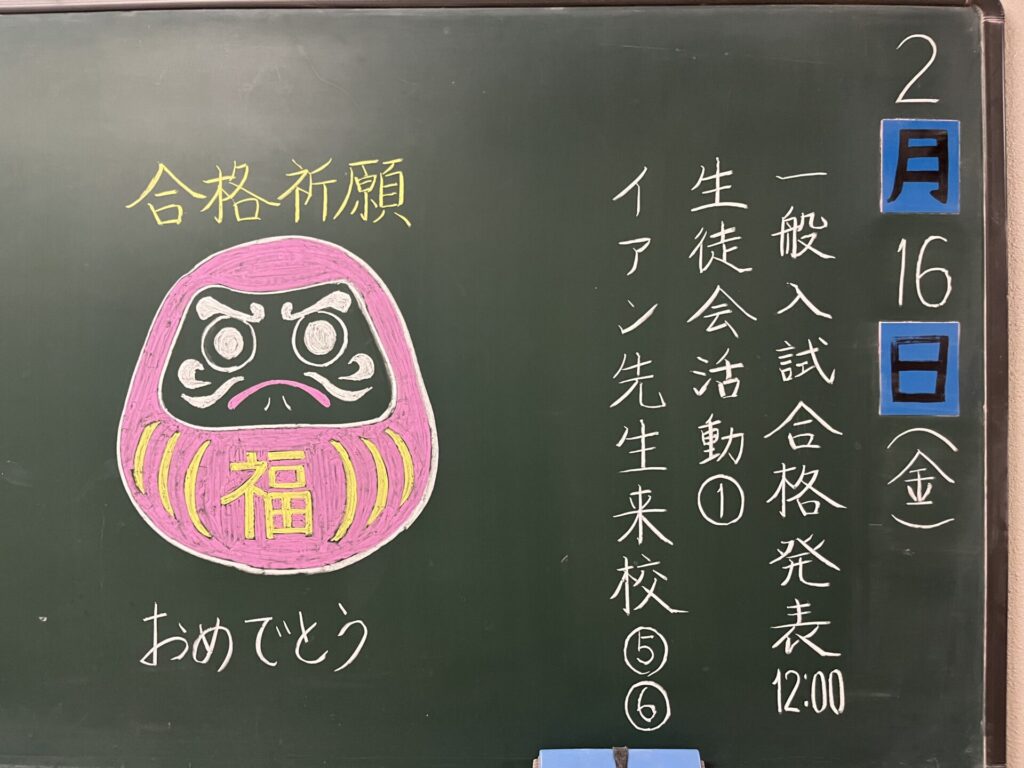 2月16日(金)
一般入試合格発表12:00
生徒会活動①
イアン先生来校⑤⑥
合格祈願
福
おめでとう